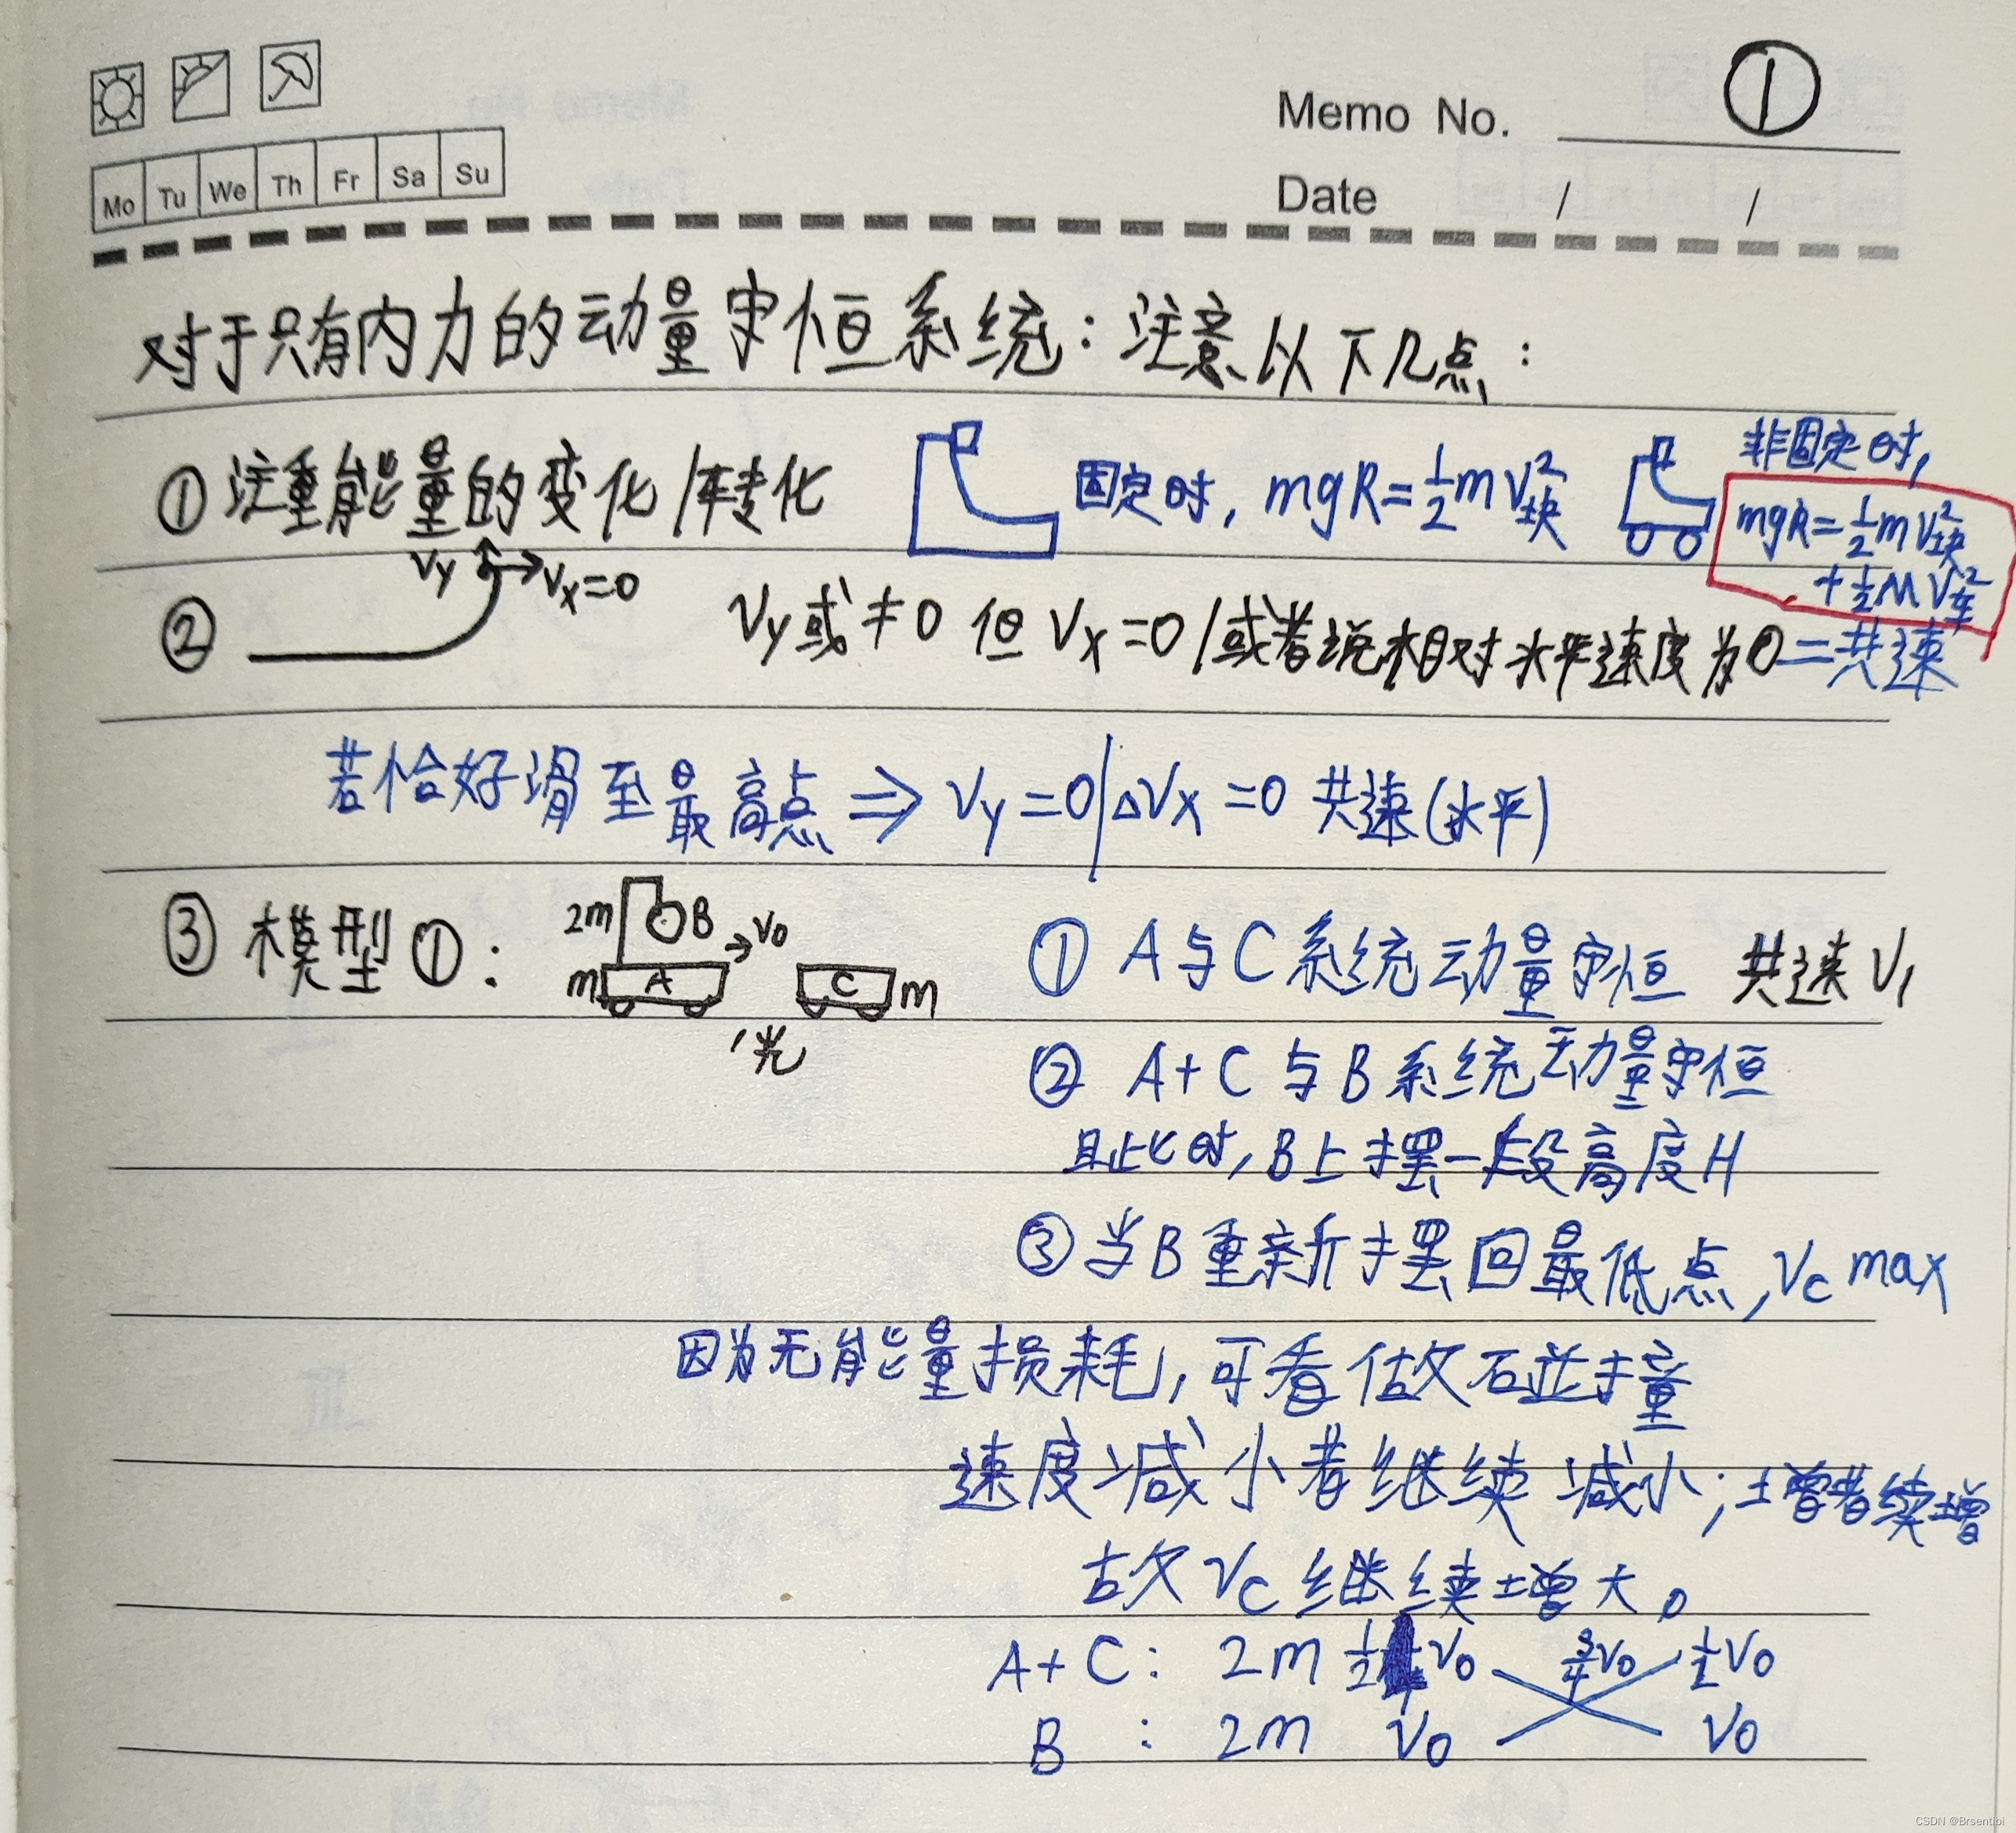 Memo No. ①
Mo Tu We Th Fr Sa Su
Date / /
对于只有内力的动量守恒系统：注意以下几点：
①注重能量的变化/转化 固定时，mgR=½mV块² 非固定时，
mgR=½mV块²
+½MV车²
② Vy Vx=0 Vy或≠0 但 Vx=0/或者说相对水平速度为0=共速
若恰好滑至最高点⇒Vy=0|△Vx=0 共速(水平)
③模型①： 2m B →V0 m A C m ①A与C系统动量守恒 共速V1
光
②A+C与B系统动量守恒
且此时，B上摆一段高度H
③当B重新摆回最低点，Vc max
因为无能量损耗，可看做碰撞
速度减小者继续减小；增者续增
故Vc继续增大。
A+C： 2m ½V0 ¾V0 ½V0
B ： 2m V0 V0
CSDN @Brsentibi